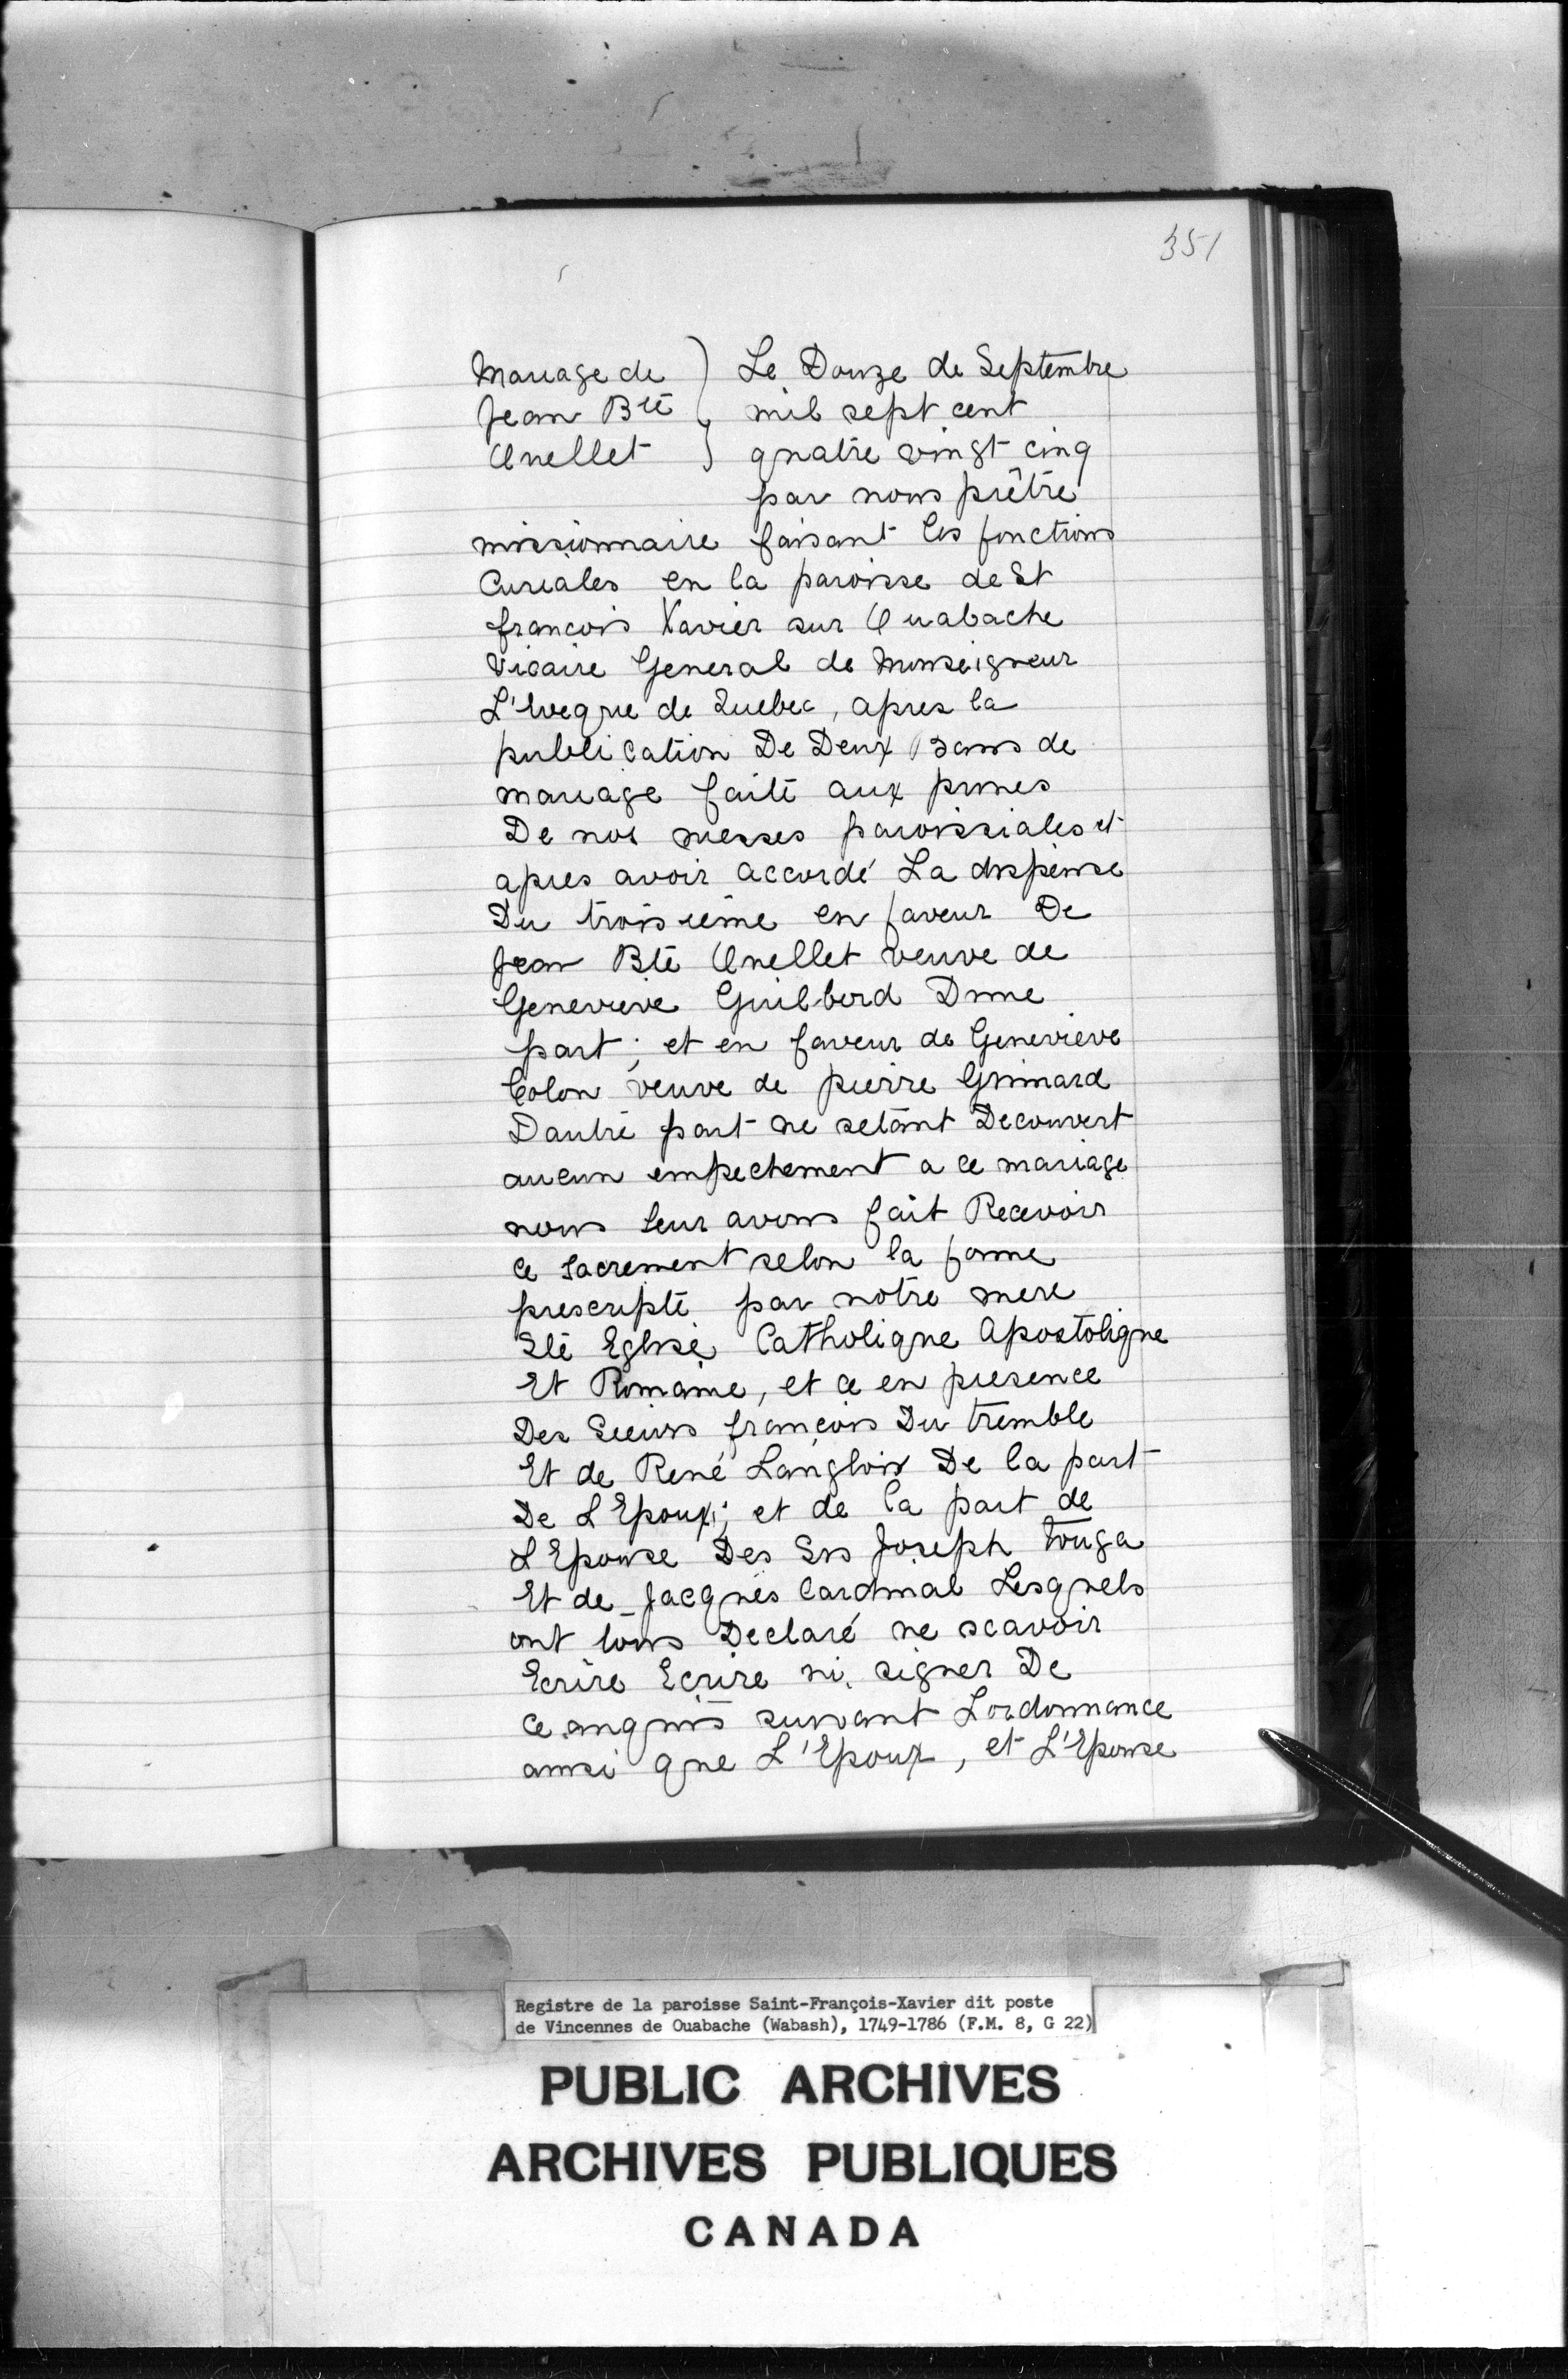 351
Mariage de
Jean Bte
Ouellet
Le Douze de Septembre
mil sept cent
quatre vingt cinq
par nous prêtre
missionnaire faisant les fonctions
Curiales en la paroisse de St
françois Xavier sur Ouabache
Vicaire General de Monseigneur
L'Eveque de Quebec, apres la
publication De Deux Bans de
mariage faite aux prones
De nos messes paroissiales et
apres avoir accordé La dispense
Du troisieme en faveur De
Jean Bte Ouellet veuve de
Genevieve Guilbord Dune
part; et en faveur de Genevieve
Colon veuve de pierre Grimard
Dautre part ne setant Decouvert
aucun empechement a ce mariage
nous leur avons fait Recevoir
ce sacrement selon la forme
prescripte par notre mere
Ste Eglise Catholique Apostolique
Et Romaine, et ce en presence
Des Sieurs françois Du tremble
Et de René Langlois De la part
De L'Epoux; et de la part de
L'Epouse Des Srs Joseph Touga
Et de Jacques Cardinal Lesquels
ont tous Declaré ne scavoir
Ecrire Ecrire ni signer De
ce enquis suivant Lordonnance
ainsi que L'Epoux, et L'Epouse
Registre de la paroisse Saint-François-Xavier dit poste
de Vincennes de Ouabache (Wabash), 1749-1786 (F.M. 8, G 22)
PUBLIC ARCHIVES
ARCHIVES PUBLIQUES
CANADA